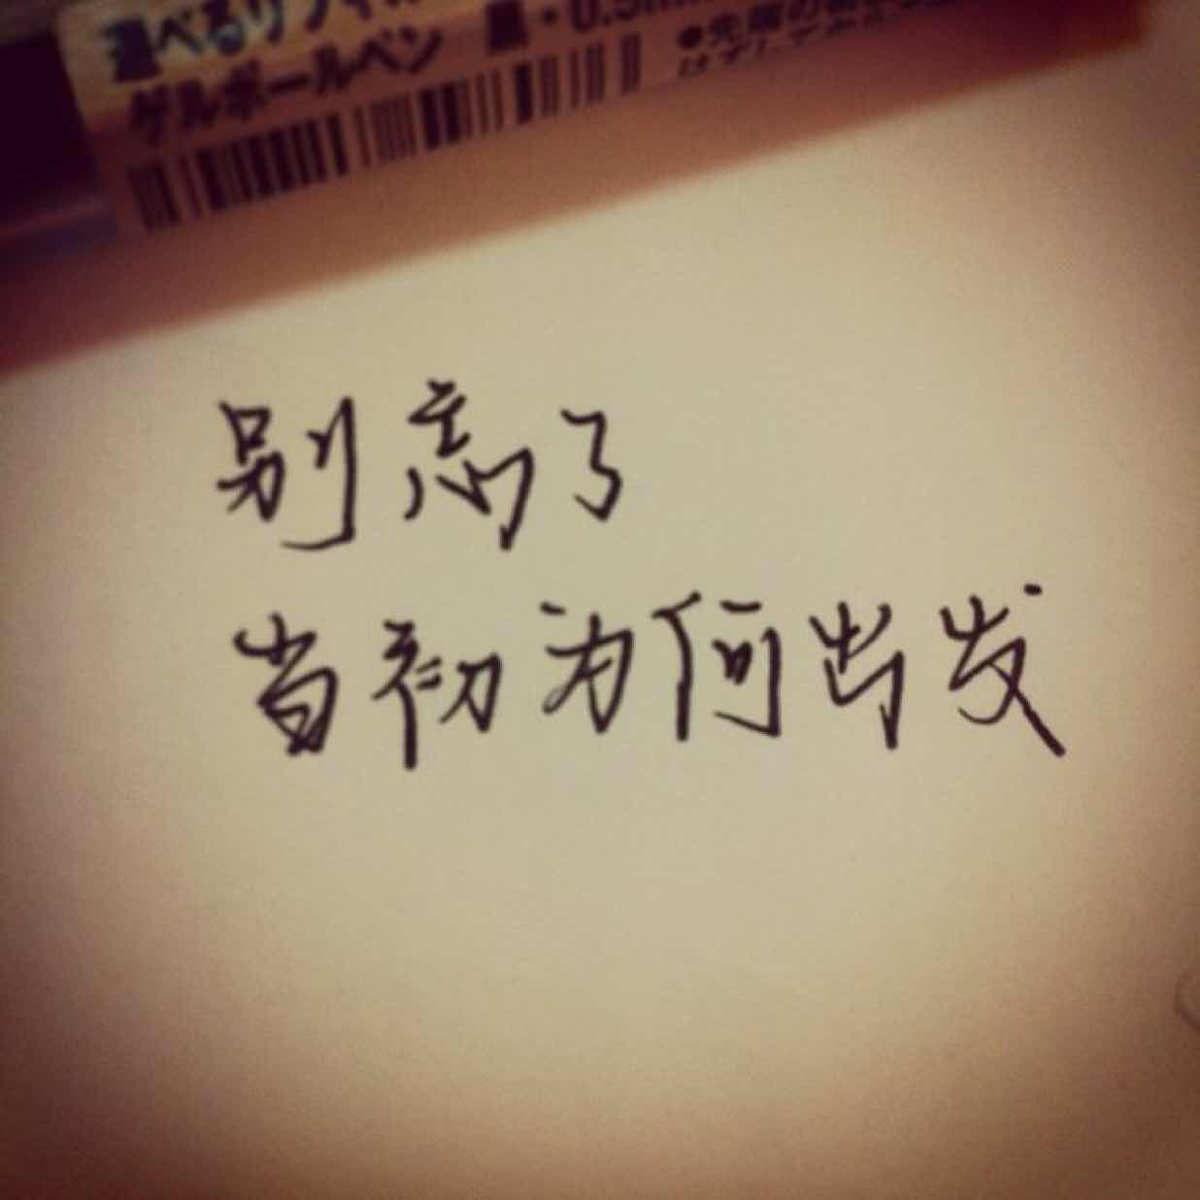 選べるリフィル
ゲルボールペン 黒・0.5m
●先端の
はずしてか
别忘了
当初为何出发